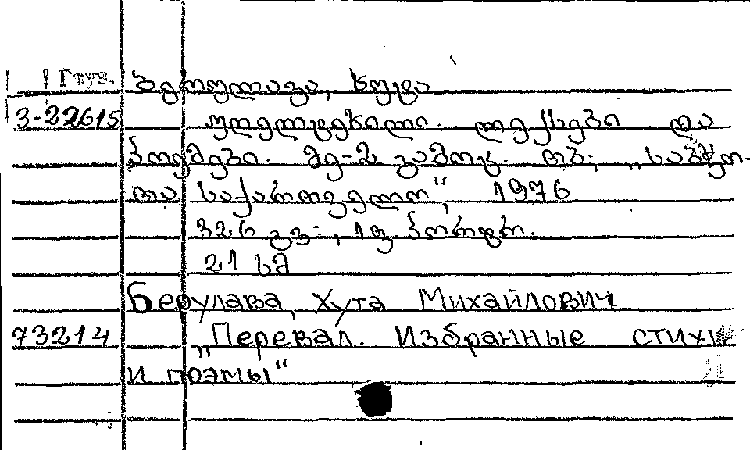 Груз. ბერულავა, ხუტა
3-22615 უღელტეხილი. ლექსები და
პოემები. მე-2 გამოც. თბ., „საბჭო-
თა საქართველო“, 1976
326 გვ., 1 ფ. პორტრ.
21 სმ
Берулава, Хута Михайлович
73214 „Перевал. Избранные стихи
и поэмы“